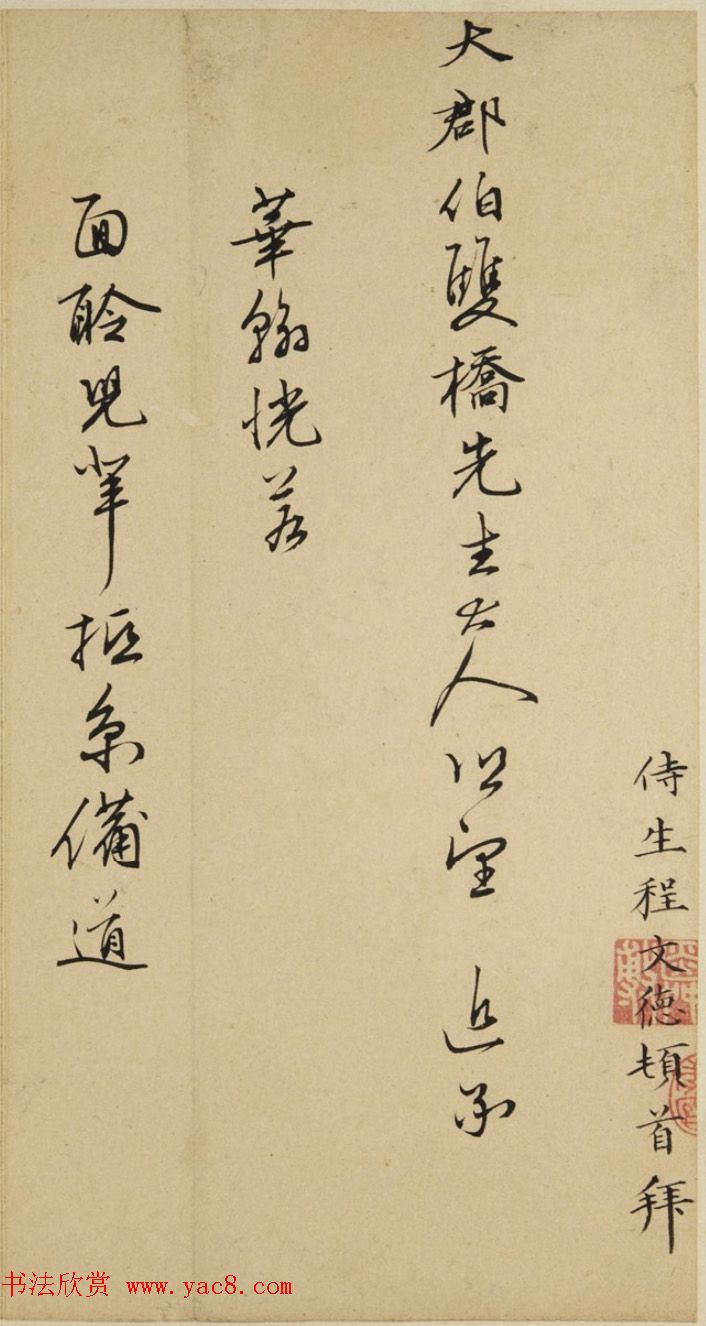 侍生程文德頓首拜
大郡伯雙橋先生大人 近承
華翰恍若
面聆兒輩抵京備道
书法欣赏 www.yac8.com